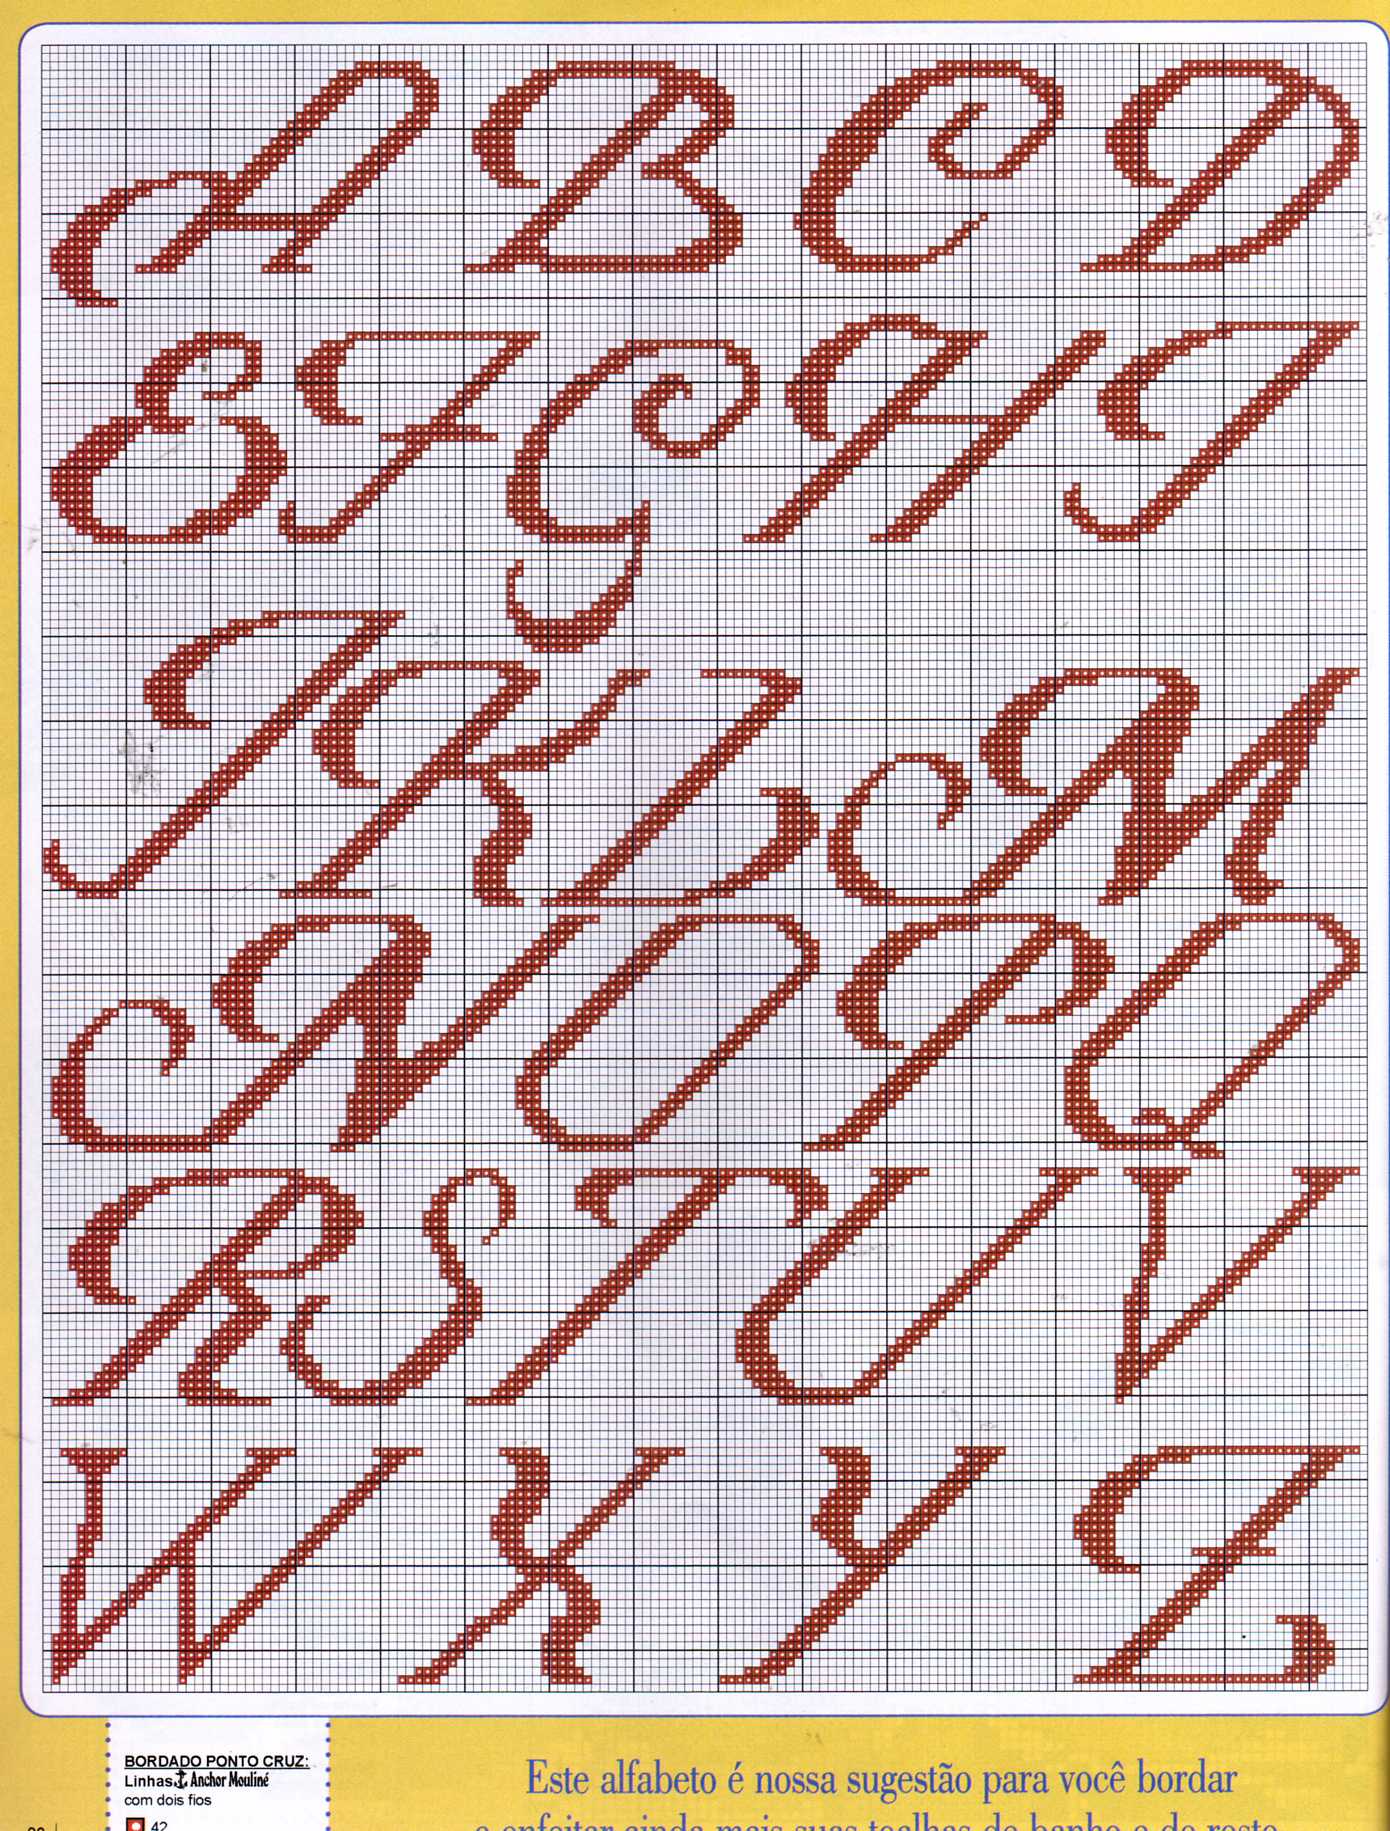 A B C D
E F G H I
J K L M
N O P Q
R S T U V
W X Y Z
BORDADO PONTO CRUZ:
Linhas Anchor Mouliné
com dois fios
42
Este alfabeto é nossa sugestão para você bordar
e enfeitar ainda mais suas toalhas de banho e de rosto